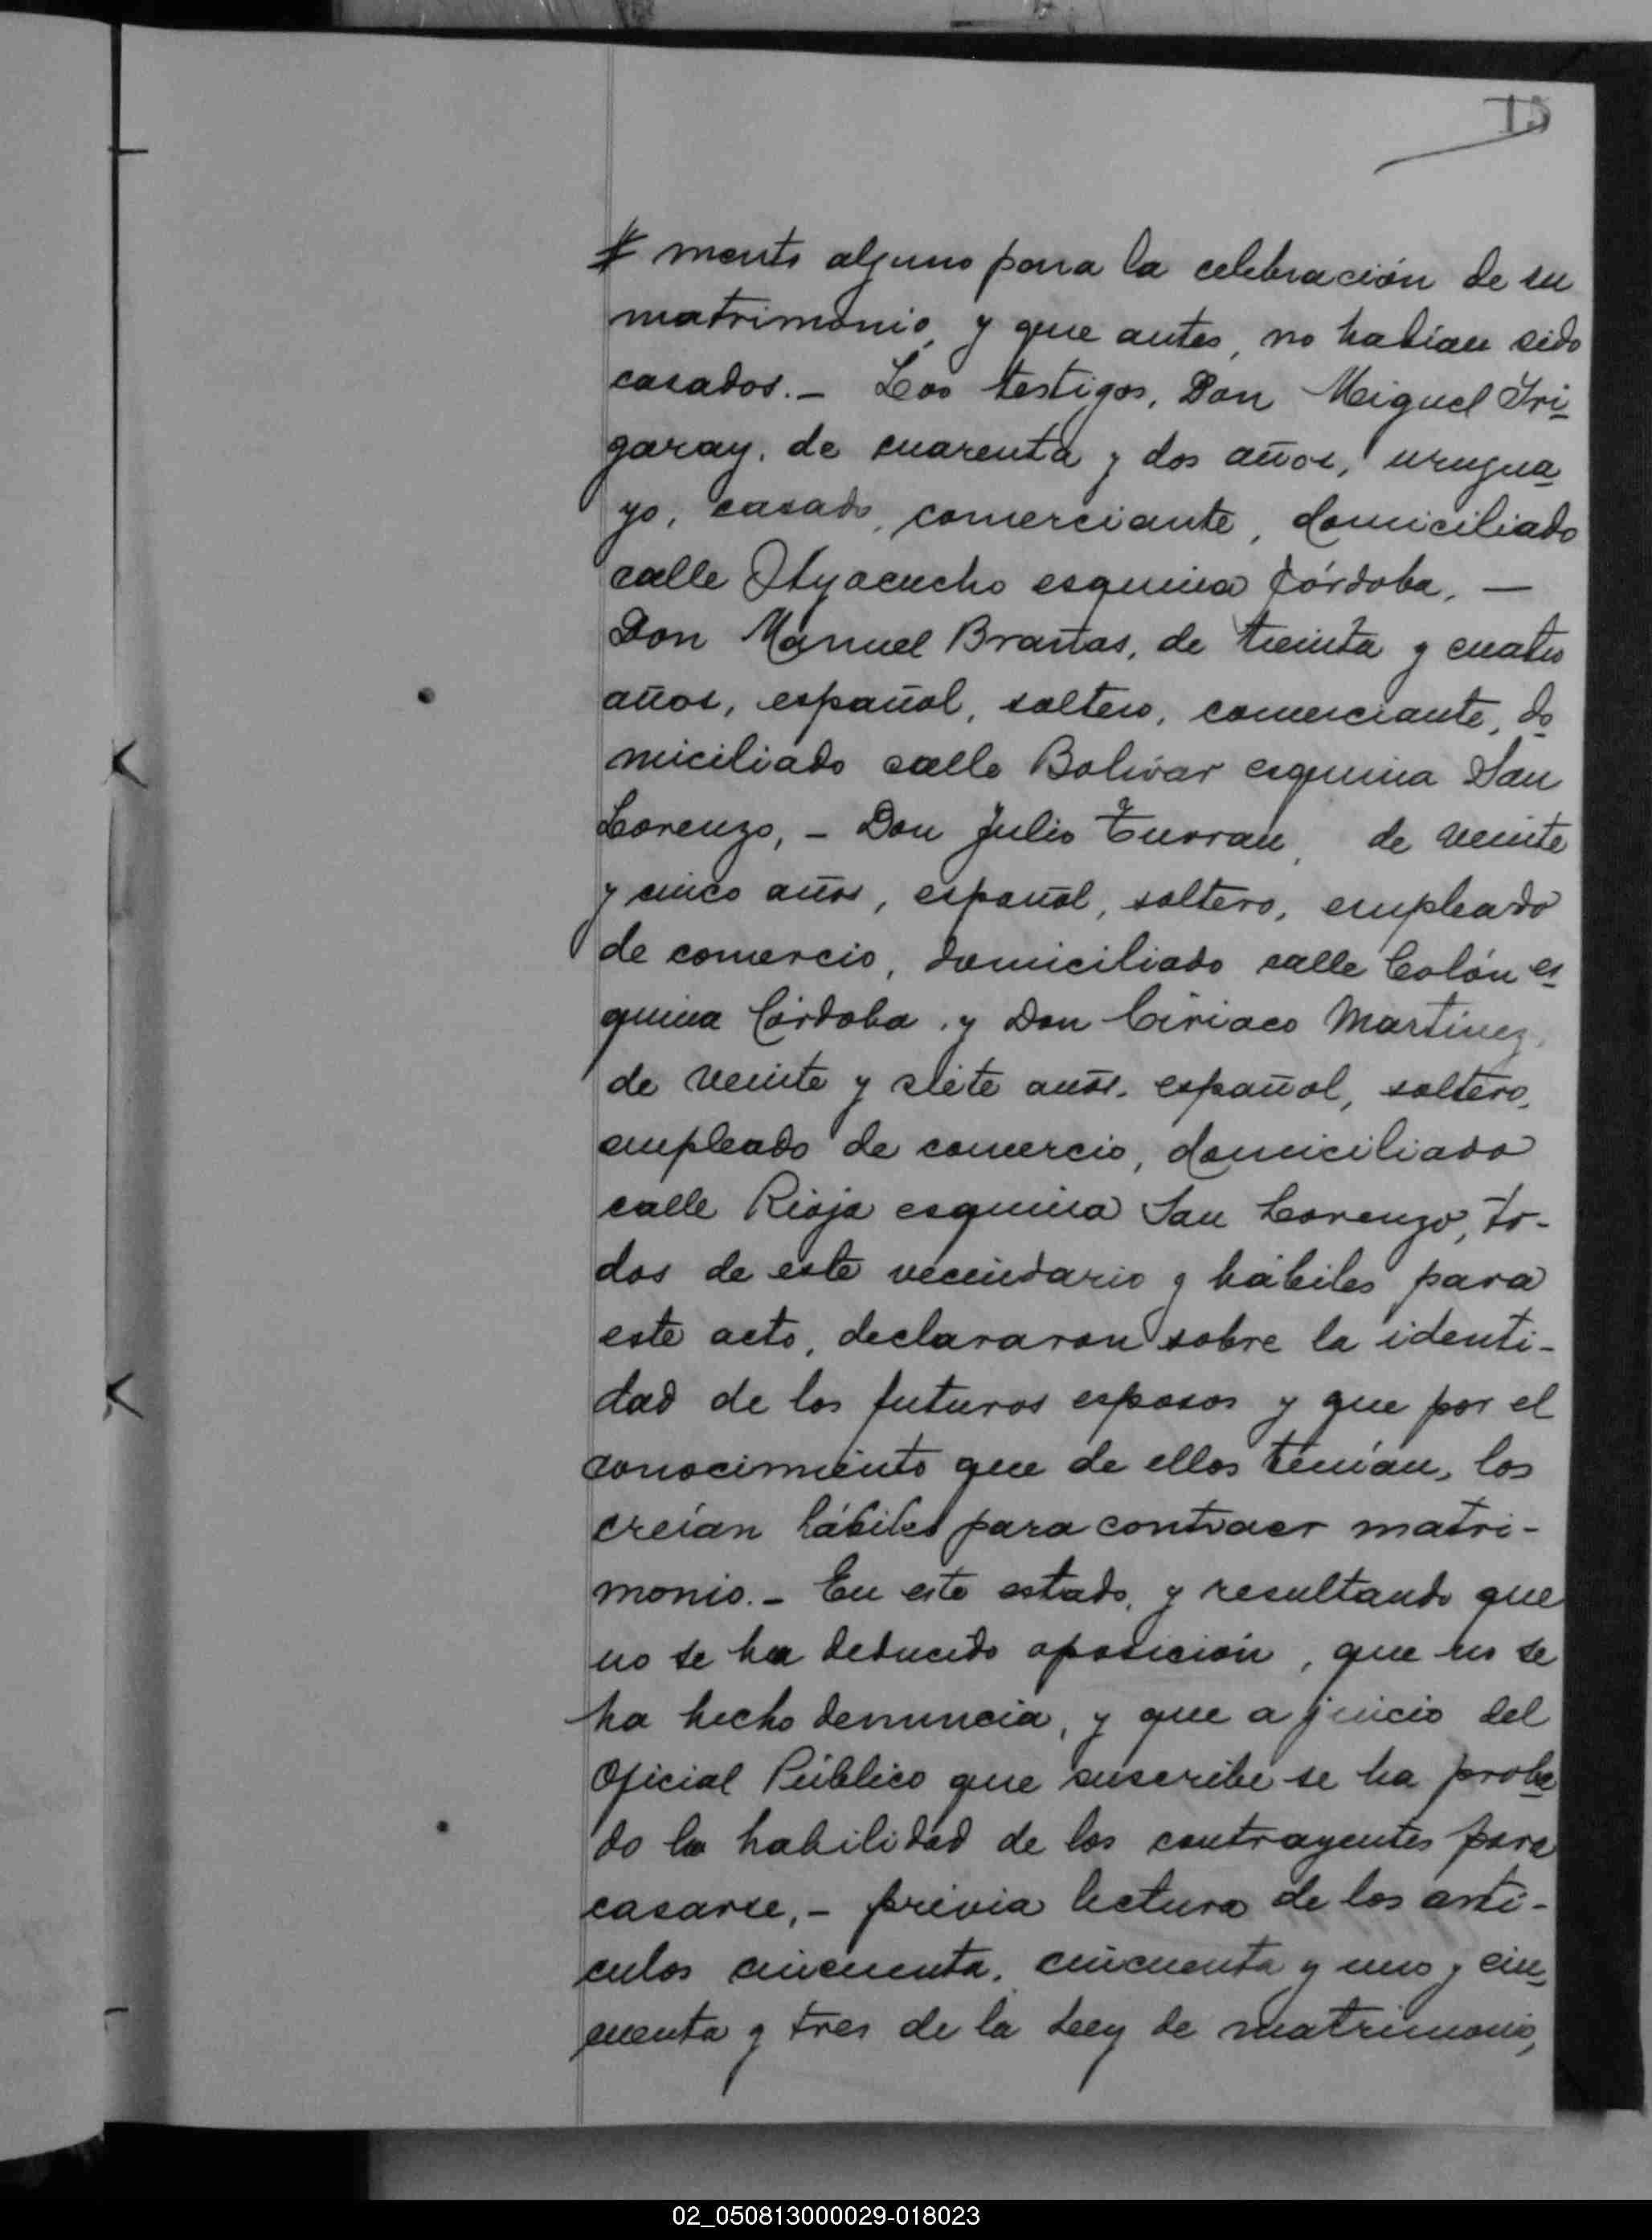 15
# mento alguno para la celebración de su
matrimonio, y que antes, no habían sido
casados.- Los testigos, Don Miguel Iri-
garay, de cuarenta y dos años, urugua-
yo, casado, comerciante, domiciliado
calle Ayacucho esquina Córdoba, —
Don Manuel Brañas, de treinta y cuatro
años, español, soltero, comerciante, do-
miciliado calle Bolivar esquina San
Lorenzo, - Don Julio de veinte
y cinco años, español, soltero, empleado
de comercio, domiciliado calle Colón es-
quina Córdoba, y Don Ciriaco Martinez,
de veinte y siete años, español, soltero,
empleado de comercio, domiciliado
calle Rioja esquina San Lorenzo, to-
dos de este vecindario y hábiles para
este acto, declararon sobre la identi-
dad de los futuros esposos y que por el
conocimiento que de ellos tenían, los
creían hábiles para contraer matri-
monio.- En este estado, y resultando que
no se ha deducido oposición, que no se
ha hecho denuncia, y que a juicio del
Oficial Público que suscribe se ha proba-
do la habilidad de los contrayentes para
casarse,- previa lectura de los arti-
culos cincuenta, cincuenta y uno y cin-
cuenta y tres de la Ley de matrimonio,
02_050813000029-018023